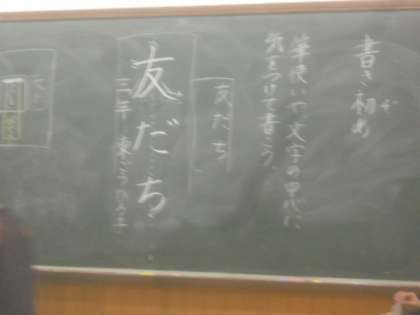 書き初め
ぞ
筆使いや文字の中心に
気をつけて書こう
友だち
友だち
三年